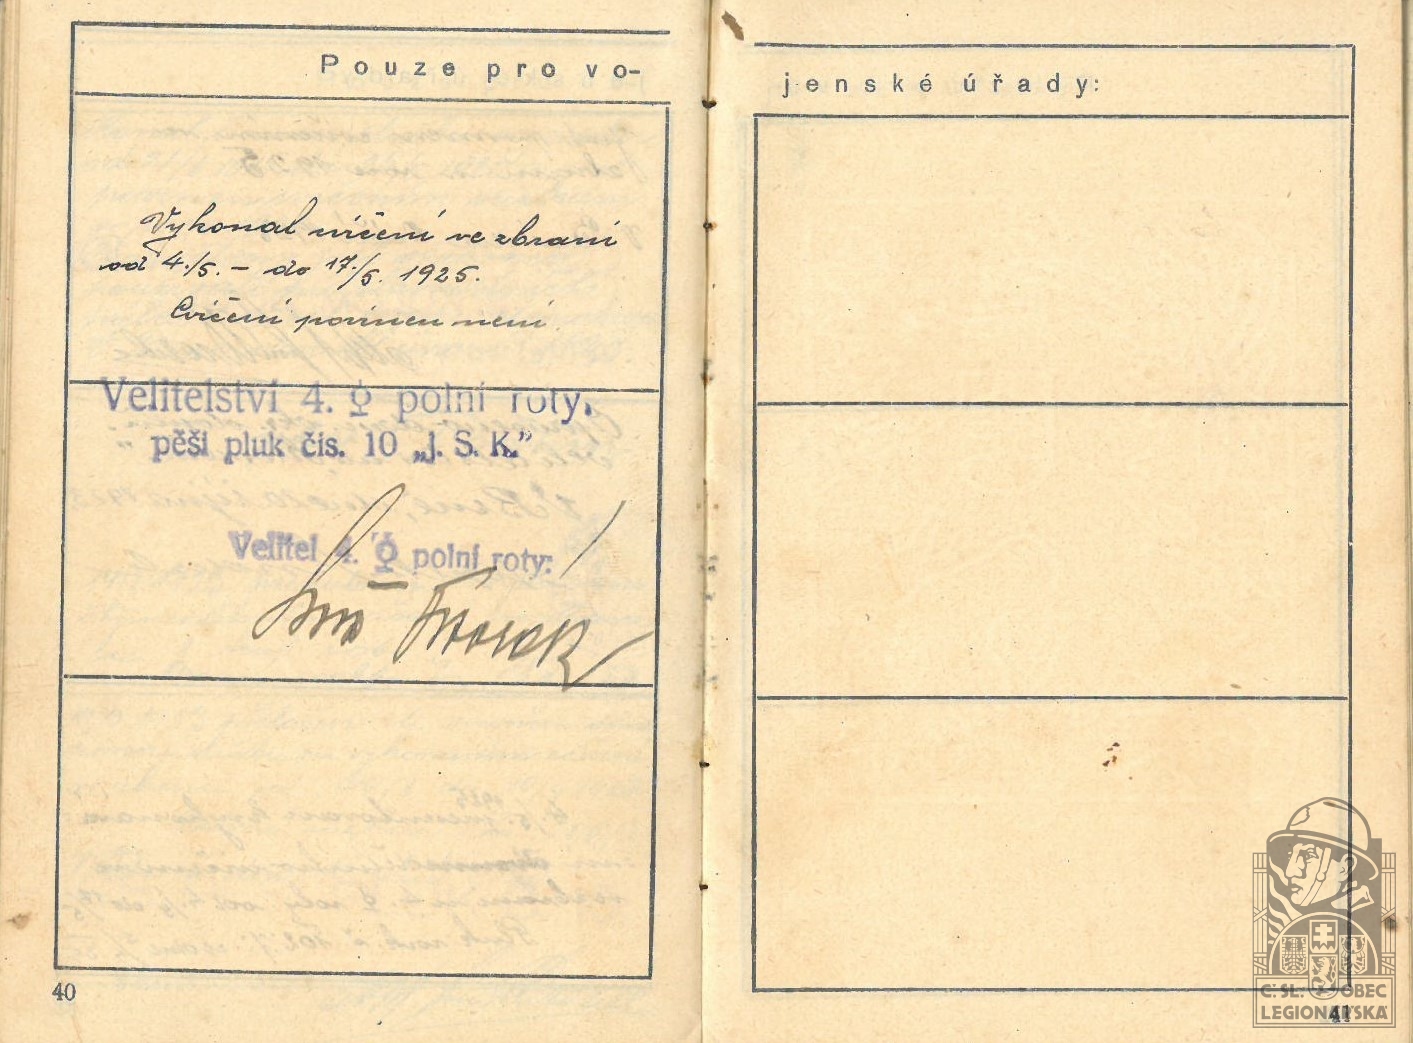 Pouze pro vo-
Vykonal cvičení ve zbrani
od 4./5. - do 17./5. 1925.
Cvičení povinen není.
Velitelství 4. polní roty,
pěší pluk čís. 10 „J. S. K.”
Velitel 4. polní roty:
40
jenské úřady:
41
Č. SL. OBEC
LEGIONÁŘSKÁ